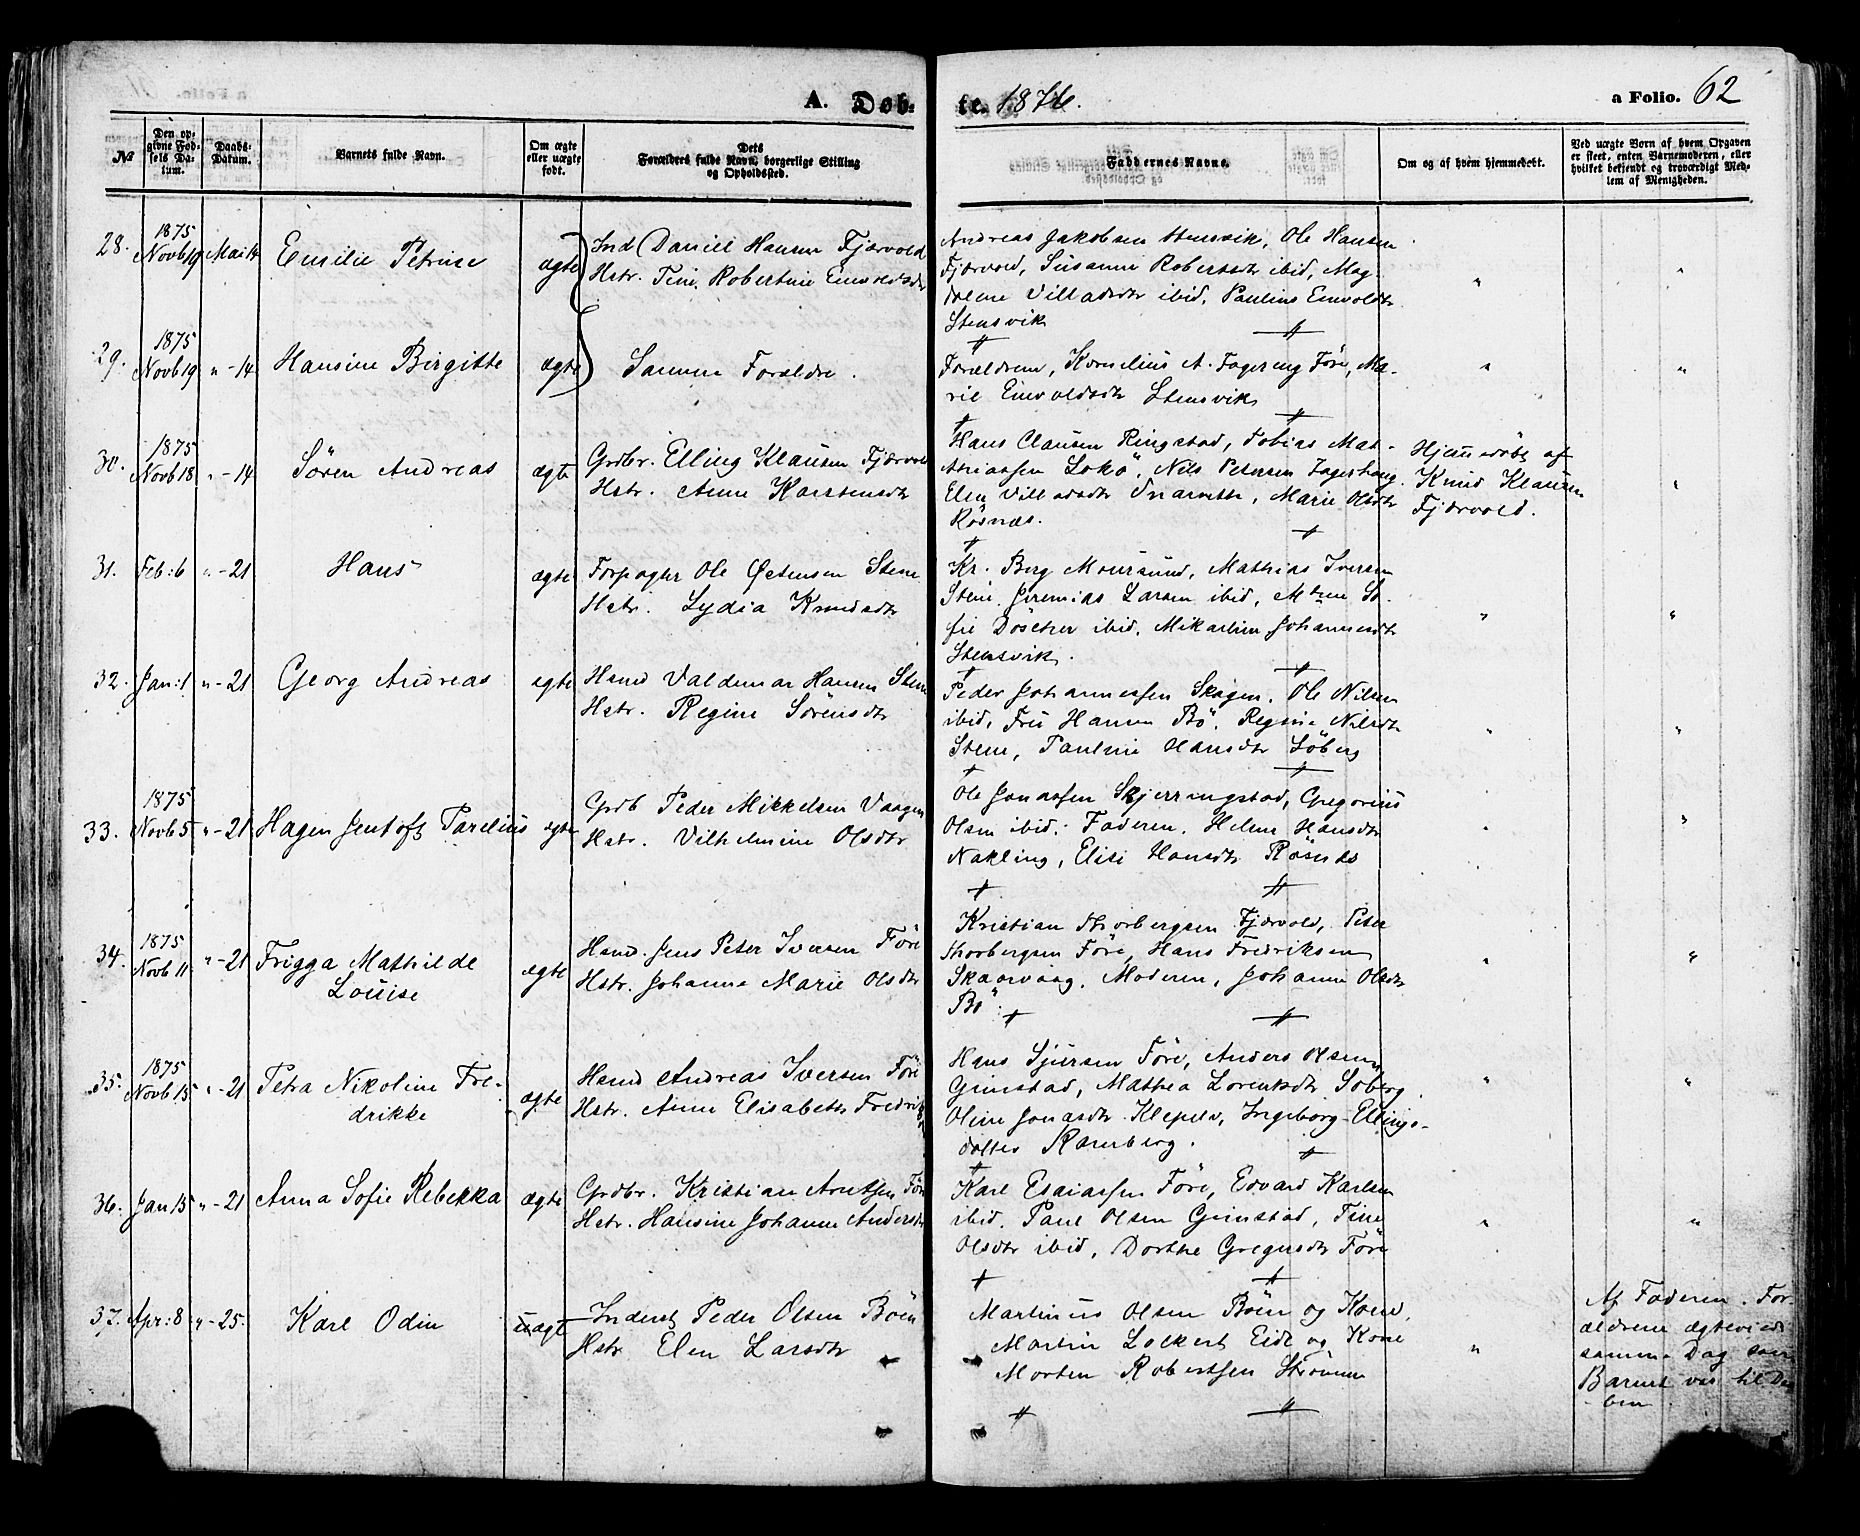 A. Døb- te. 1876. a Folio. 62
№
Den op-
givne Fød-
sels Da-
tum.
Daabs-
Datum.
Barnets fulde Navn.
Om ægte
eller uægte
født.
Dets
Forældres fulde Navn, borgerlige Stilling
og Opholdssted.
Faddernes Navne.
Om og af hvem hjemmedøbt.
Ved uægte Børn af hvem Opgaven
er skeet, enten Barnemoderen, eller
hvilket bekjendt og troværdigt Med-
lem af Menigheden.
28. 1875 Novb 19 Mai 14 Emilie Petrine ægte
Ind Daniel Hansen Fjærvold
Hstr. Tine Robertine Envoldsdtr
Andreas Jakobsen Stensvik, Ole Hansen
Fjærvold, Susanne Robertsdtr ibid, Mag-
dalene Villadsdtr ibid, Pauline Envoldsdtr
Stensvik
29. 1875 Novb 19 " - 14 Hansine Birgitte ægte
Samme Forældre.
Forældrene, Kornelius A. Fagereng Føre, Ma-
rie Envoldsdtr Stensvik
30. 1875 Novb 18 " - 14 Sören Andreas ægte
Grdbr. Elling Klausen Fjærvold
Hstr. Anne Karstensdtr
Hans Clausen Ringstad, Tobias Mat-
thiassen Lokö, Nils Petersen
Elen Villadsdtr, Marie Olsdtr
Røsnæs.
Hjemmedøbt af
Knud Klausen
Fjærvold.
31. Feb: 6 " - 21 Hans ægte
Forpagter Ole Østensen Stene
Hstr. Lydia Knudsdtr
Kr. Berg Moursund, Mathias Iversen
Stene, Jeremias Larsen ibid, So-
fie Döscher ibid, Mikaeline Johannesdtr
Stensvik.
32. Jan: 1 " - 21 Georg Andreas ægte
Hsmd Valdemar Hansen Stene
Hstr. Regine Sörensdtr
Peder Johannessen Skagen, Ole Nilsen
ibid, Fru Hansen Bö, Regine Nilsdtr
Stene, Pauline Hansdtr Söberg
33. 1875 Novb 5 " - 21 Hagen Jentoft Parelius ægte
Grdb Peder Mikkelsen Vaagen
Hstr. Vilhelmine Olsdtr
Ole Jonassen Skjerringstad, Gregorius
Olsen ibid, Faderen, Helene Hansdtr
Nykling, Elise Hansdtr Røsnæs
34. 1875 Novb 11 " - 21 Frigga Mathilde
Louise ægte
Hsmd. Jens Peter Iversen Före
Hstr. Johanna Marie Olsdtr
Kristian Thorbergsen Fjærvold, Peter
Thorbergsen Före, Hans Fredriksen
Skaarvaag, Moderen, Johanne Olsdtr
Bö.
35. 1875 Novb 15 " - 21 Petra Nikoline Fre-
drikke ægte
Hsmd Andreas Iversen Före
Hstr. Anne Elisabeth
Hans Sjursen Före, Anders Olsen
Grimstad, Mathea Lorentsdtr Söberg,
Oline Jonasdtr Klepelv, Ingeborg Ellings-
datter Ramberg.
36. Jan 15 " - 21 Anna Sofie Rebekka ægte
Grdbr. Kristian Arntsen Före
Hstr. Hansine Johanne Andersdtr
Karl Esaiassen Före, Edvard Karlsen
ibid, Paul Olsen Grimstad, Tine
Olsdtr ibid, Dorthe Gregusdtr Före
37. Apr: 8 " - 25. Karl Odin uægte
Inderst Peder Olsen Böen
Hstr Elen Larsdtr
Martinus Olsen Böen og Kone,
Martin Lockert Eide og Kone
Morten Robertsen Strömme
Af Faderen. For-
ældrene ægteviede
samme Dag som
Barnet var til Daa-
ben